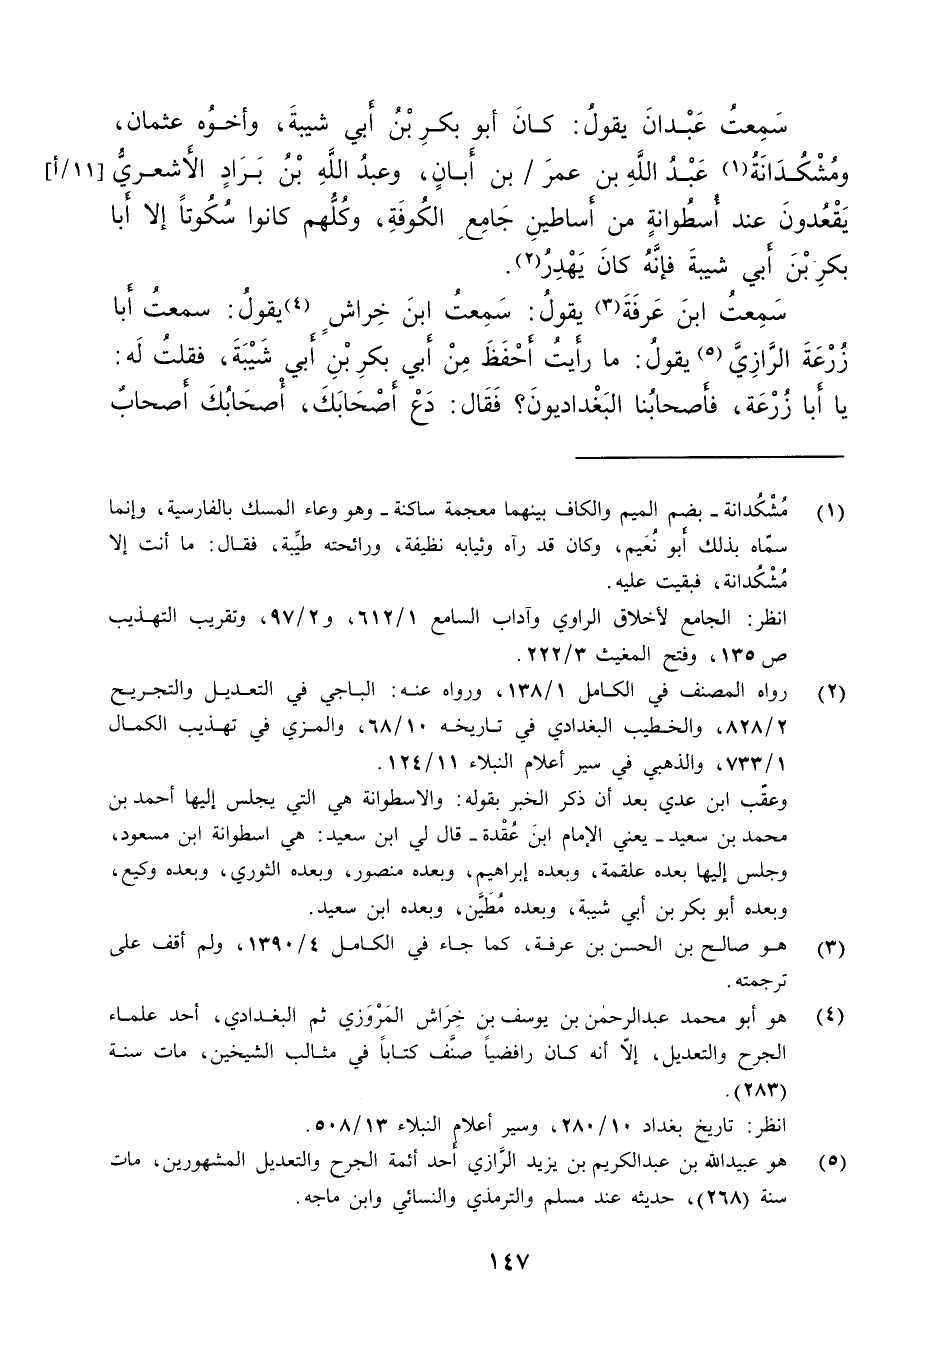 سَمِعتُ عَبْدانَ يقولُ: كانَ أبو بكرِ بْنُ أَبي شيبةَ، وأخوُه عثمان،
ومُشْكُدَانَةُ(١) عَبْدُ اللهِ بن عمرَ / بن أَبانٍ، وعبدُ اللَّهِ بْنُ بَرَادٍ الأَشعريُّ [١١/أ]
يَقْعُدونَ عند أُسطُوانةٍ من أَساطينِ جَامِعِ الكُوفَةِ، وكُلُّهم كانوا سُكُوتاً إلا أَبا
بكرِ بْنَ أَبي شيبةَ فإنَّهُ كانَ يَهْدِرُ(٢).
سَمِعتُ ابنَ عَرفَةَ(٣) يقولُ: سَمِعتُ ابنَ خِراشٍ(٤) يقولُ: سمعتُ أَبا
زُرْعَةَ الرَّازِيَّ(٥) يقولُ: ما رأَيتُ أَحْفَظَ مِنْ أَبي بكرِ بْنِ أَبي شَيْبَةَ، فقلتُ لَه:
يا أَبا زُرْعَة، فأَصحابُنا البَغْداديونَ؟ فقَال: دَعْ أَصْحَابَكَ، أَصحَابُكَ أَصحابُ
(١) مُشْكُدانة ـ بضم الميم والكاف بينهما معجمة ساكنة ـ وهو وعاء المسك بالفارسية، وإنما
سمّاه بذلك أبو نُعَيم، وكان قد رآه وثيابه نظيفة، ورائحته طيِّبة، فقال: ما أنت إلا
مُشْكُدانة، فبقيت عليه.
انظر: الجامع لأخلاق الراوي وآداب السامع ٦١٢/١، و٩٧/٢، وتقريب التهذيب
ص ١٣٥، وفتح المغيث ٢٢٢/٣.
(٢) رواه المصنف في الكامل ١٣٨/١، ورواه عنه: الباجي في التعديل والتجريح
٨٢٨/٢، والخطيب البغدادي في تاريخه ٦٨/١٠، والمزي في تهذيب الكمال
٧٣٣/١، والذهبي في سير أعلام النبلاء ١٢٤/١١.
وعقّب ابن عدي بعد أن ذكر الخبر بقوله: والاسطوانة هي التي يجلس إليها أحمد بن
محمد بن سعيد ـ يعني الإمام ابنَ عُقْدة ـ قال لي ابن سعيد: هي اسطوانة ابن مسعود،
وجلس إليها بعده علقمة، وبعده إبراهيم، وبعده منصور، وبعده الثوري، وبعده وكيع،
وبعده أبو بكر بن أبي شيبة، وبعده مُطَيَّن، وبعده ابن سعيد.
(٣) هو صالح بن الحسن بن عرفة، كما جاء في الكامل ١٣٩٠/٤، ولم أقف على
ترجمته.
(٤) هو أبو محمد عبدالرحمٰن بن يوسف بن خِرَاش المَرْوَزي ثم البغدادي، أحد علماء
الجرح والتعديل، إلّا أنه كان رافضياً صنَّف كتاباً في مثالب الشيخين، مات سنة
(٢٨٣).
انظر: تاريخ بغداد ٢٨٠/١٠، وسير أعلام النبلاء ٥٠٨/١٣.
(٥) هو عبيدالله بن عبدالكريم بن يزيد الرَّازي أحد أئمة الجرح والتعديل المشهورين، مات
سنة (٢٦٨)، حديثه عند مسلم والترمذي والنسائي وابن ماجه.
١٤٧